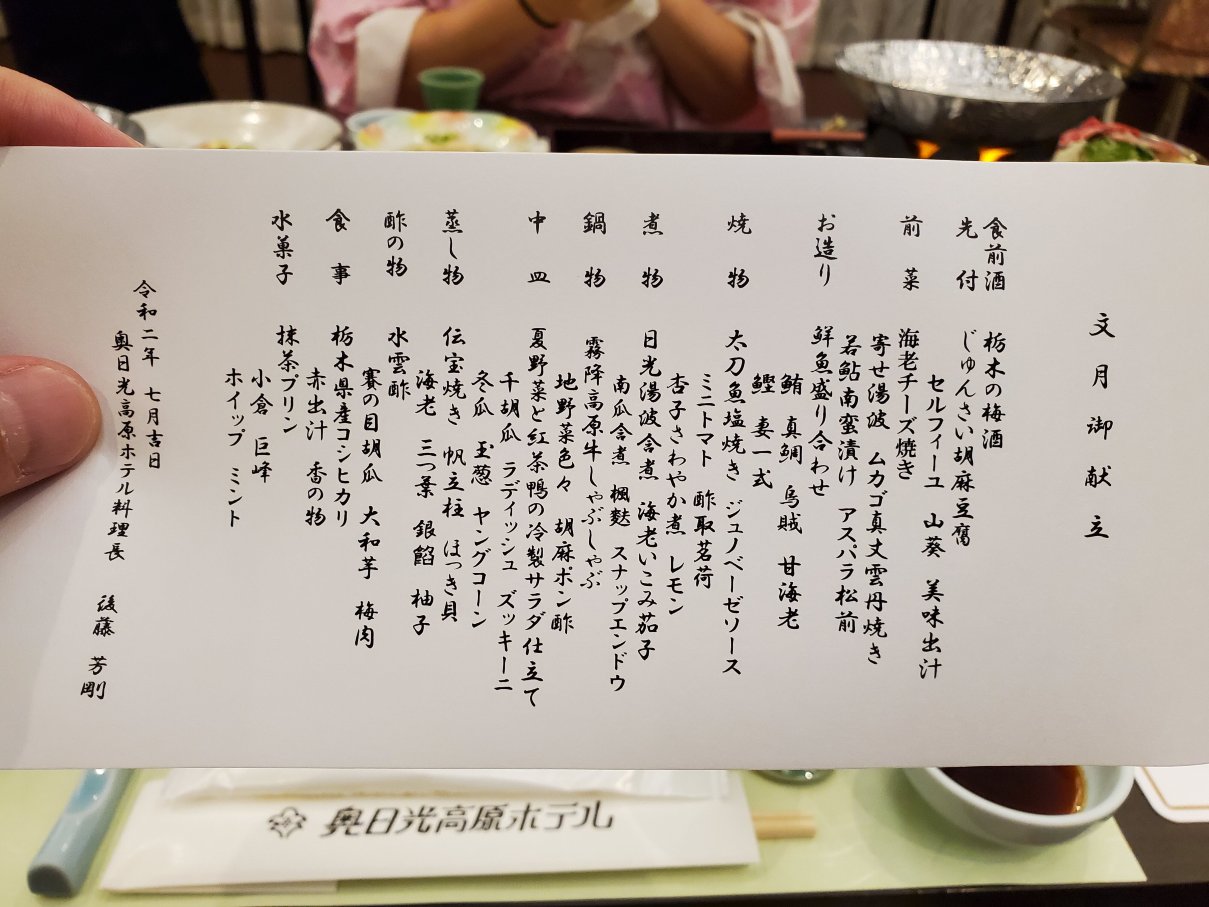 文月御献立
食前酒 栃木の梅酒
先付 じゅんさい胡麻豆腐
セルフィーユ 山葵 美味出汁
前菜 海老チーズ焼き
寄せ湯波 ムカゴ真丈雲丹焼き
若鮎南蛮漬け アスパラ松前
お造り 鮮魚盛り合わせ
鮪 真鯛 烏賊 甘海老
鰹 妻一式
焼物 太刀魚塩焼き ジュノベーゼソース
ミニトマト 酢取茗荷
杏子さわやか煮 レモン
煮物 日光湯波含煮 海老いこみ茄子
南瓜含煮 楓麩 スナップエンドウ
鍋物 霧降高原牛しゃぶしゃぶ
地野菜色々 胡麻ポン酢
中皿 夏野菜と紅茶鴨の冷製サラダ仕立て
千胡瓜 ラディッシュ ズッキーニ
冬瓜 玉葱 ヤングコーン
蒸し物 伝宝焼き 帆立柱 ほっき貝
海老 三つ葉 銀餡 柚子
酢の物 水雲酢
賽の目胡瓜 大和芋 梅肉
食事 栃木県産コシヒカリ
赤出汁 香の物
水菓子 抹茶プリン
小倉 巨峰
ホイップ ミント
令和二年 七月吉日
奥日光高原ホテル料理長 後藤 芳剛
奥日光高原ホテル